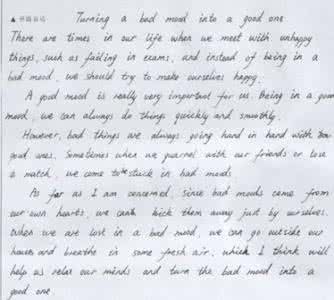 Turning a bad mood into a good one
There are times in our life when we meet with unhappy
things, such as failing in exams, and instead of being in a
bad mood, we should try to make ourselves happy.
A good mood is really very important for us. Being in a good
mood, we can always do things quickly and smoothly.
However, bad things are always going hand in hand with
good ones. Sometimes when we quarrel with our friends or lose
a match, we come to stuck in bad moods
As far as I am concerned, since bad moods come from
our own hearts, we can kick them away just by ourselves.
When we are lost in a bad mood, we can go outside our
houses and breathe in some fresh air, which I think will
help us relax our minds and turn the bad mood into a
good one.